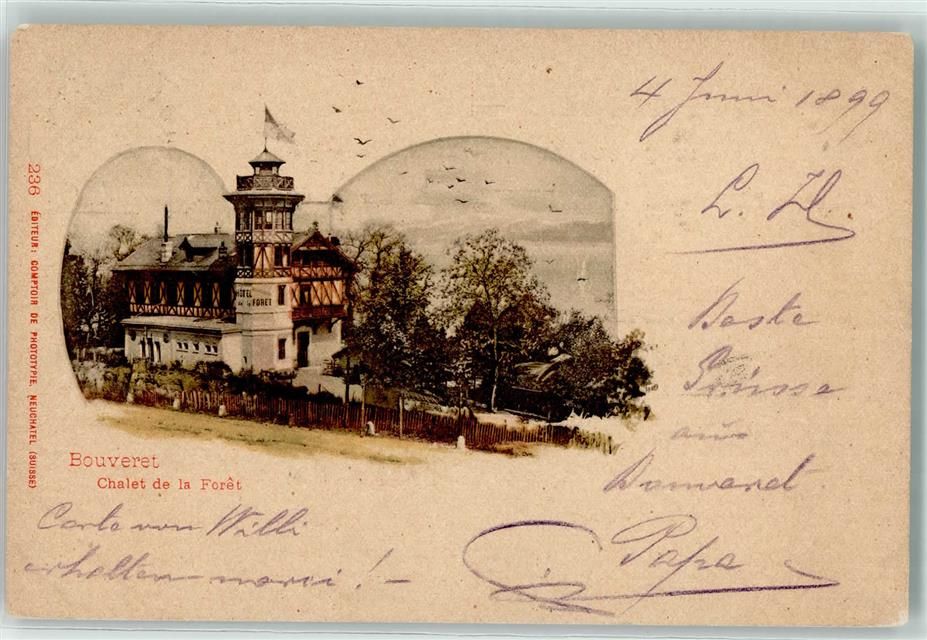 4 Juni 1899
L.
Beste
Grüsse
aus
Bouveret
Papa
HÔTEL
de la FORÊT
236 ÉDITEUR: COMPTOIR DE PHOTOTYPIE, NEUCHATEL (SUISSE)
Bouveret
Chalet de la Forêt
Carte von Willi
erhalten merci! –